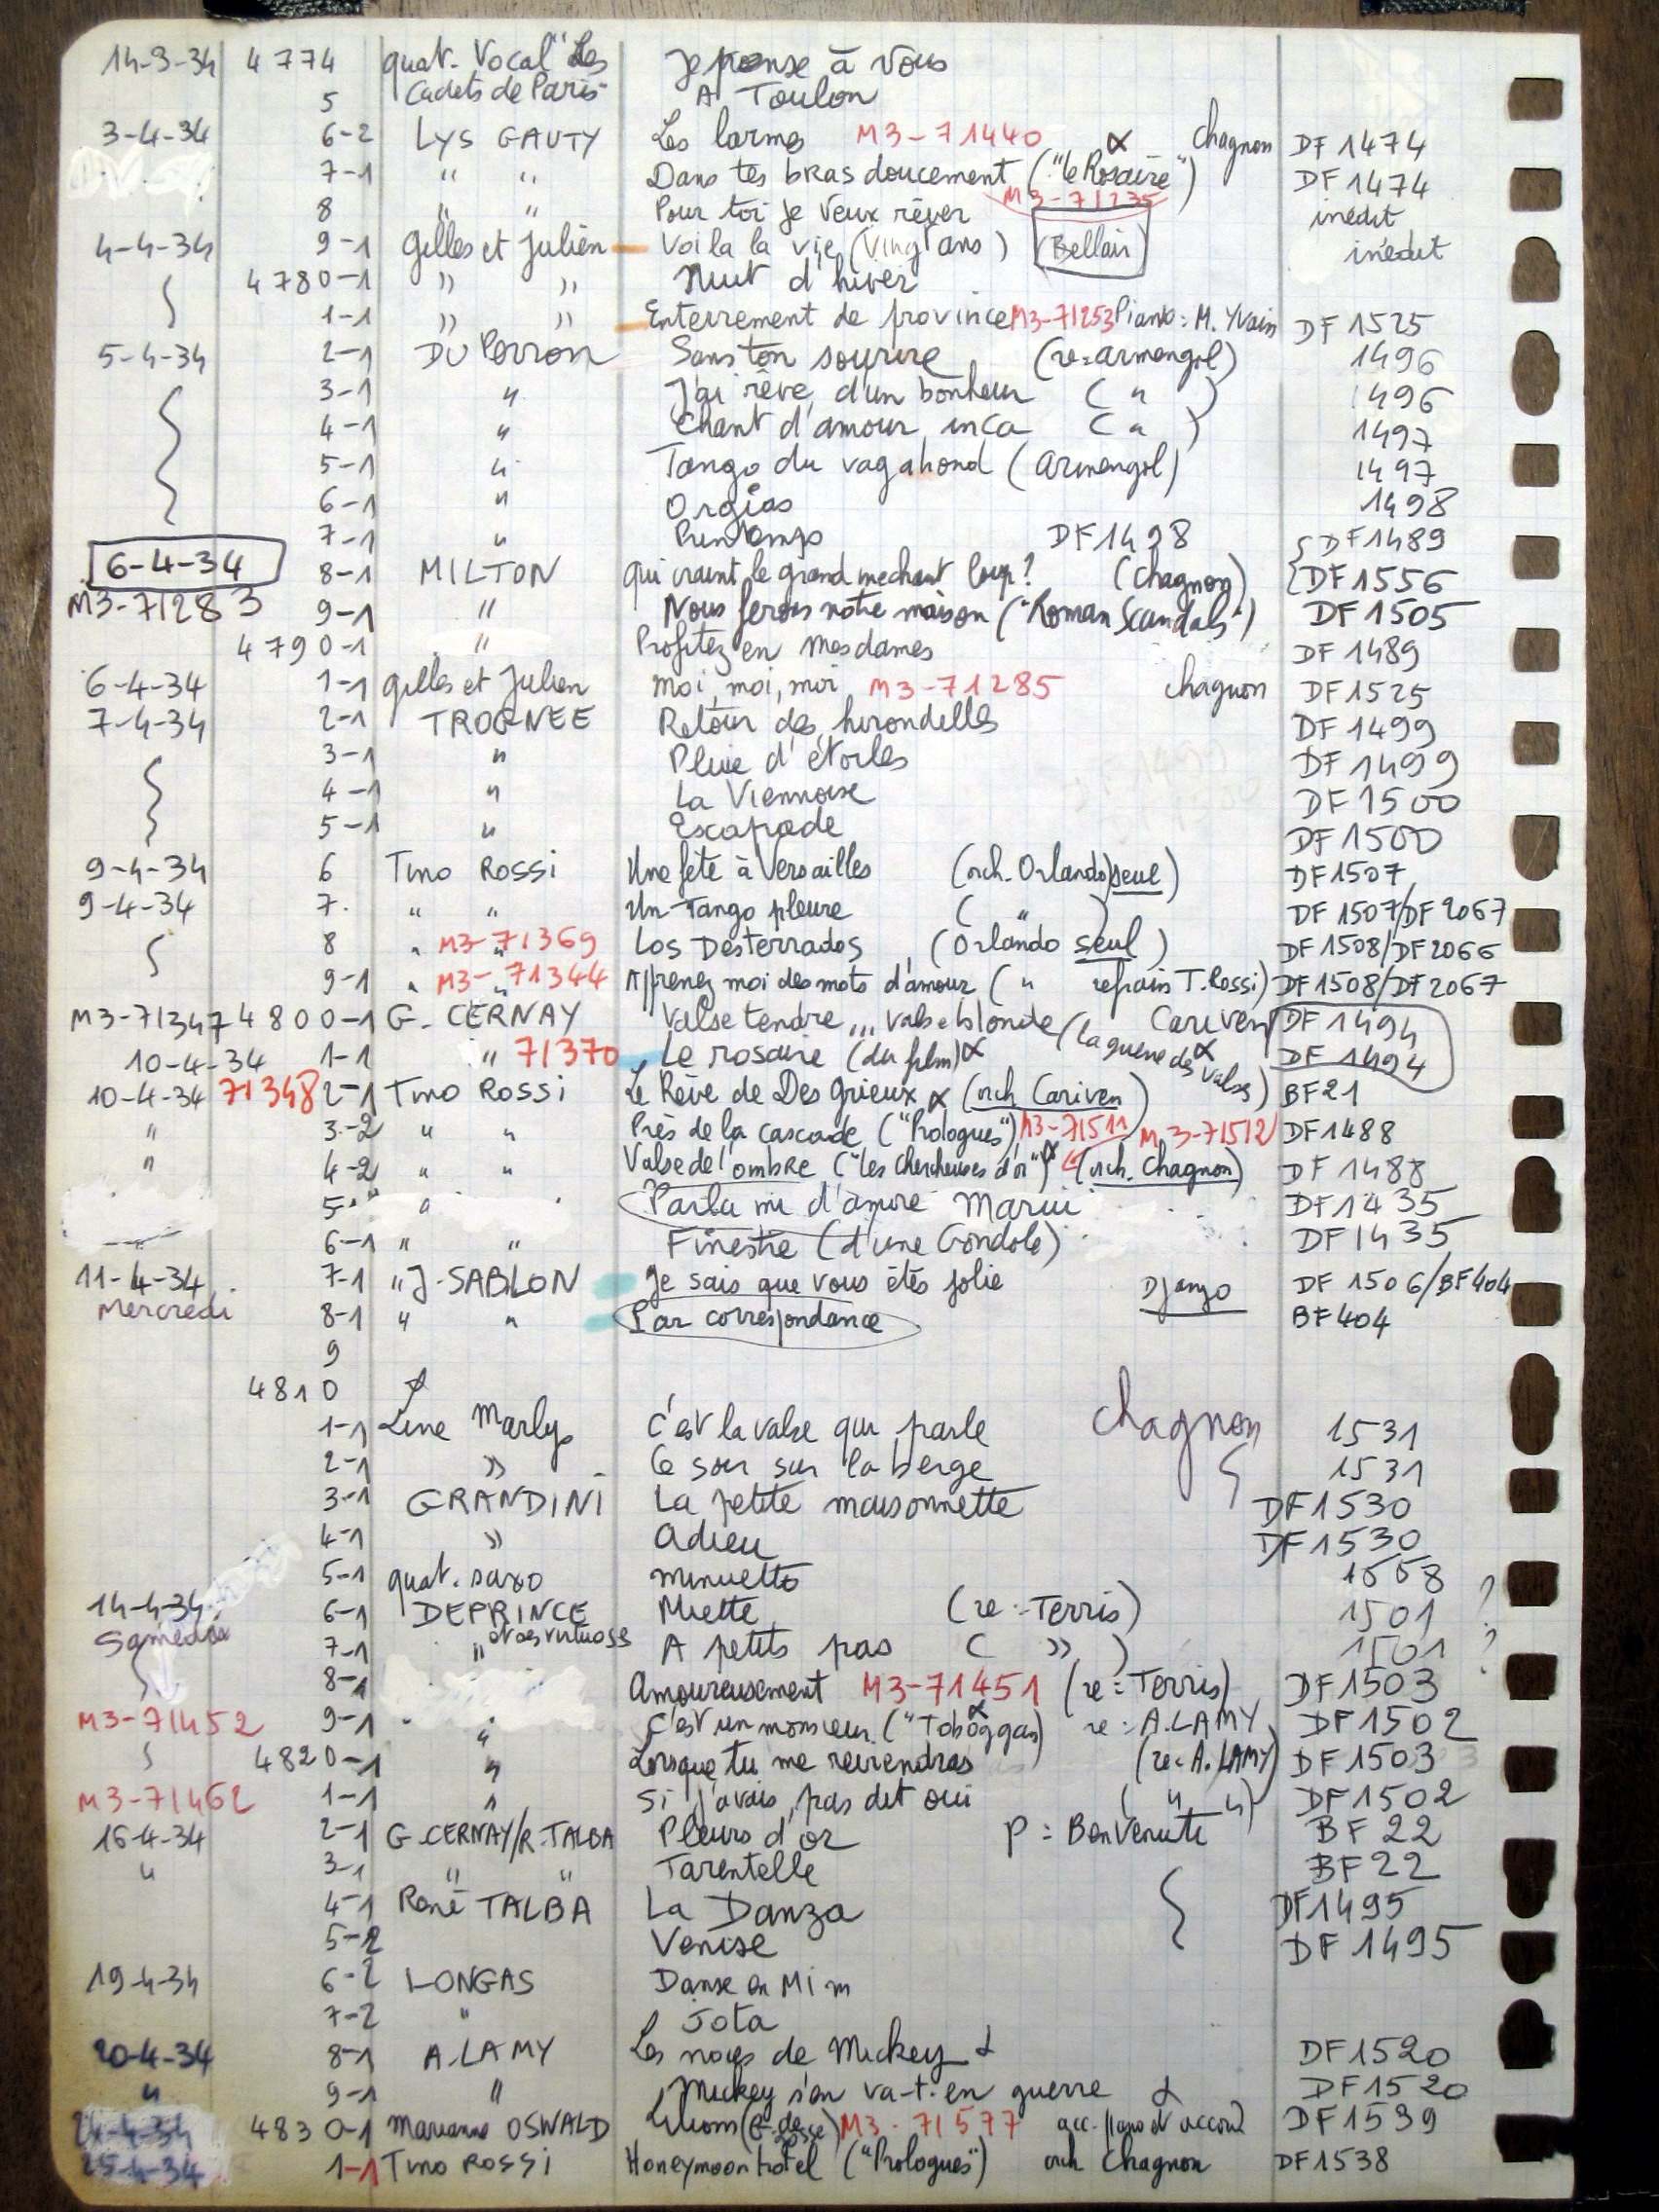 14-3-34 4774 quat. Vocal "Les Je pense à vous
5 Cadets de Paris" A Toulon
3-4-34 6-2 LYS GAUTY Les larmes M3-71440 α Chagnon DF 1474
7-1 " " Dans tes bras doucement ("le Rosaire") DF 1474
8 " " Pour toi je veux rêver M3-71235 inédit
4-4-34 9-1 Gilles et Julien Voila la vie (Vingt ans) (Bellair) inédit
4780-1 " " Nuit d'hiver
1-1 " " Enterrement de province M3-71253 Piano: M. Yvain DF 1525
5-4-34 2-1 DU Perron Sans ton sourire (re: armengol) 1496
3-1 " J'ai rêvé d'un bonheur ( " ) 1496
4-1 " Chant d'amour inca ( " ) 1497
5-1 " Tango du vagabond (armengol) 1497
6-1 " Orgias 1498
7-1 " Printemps DF1498 { DF1489
6-4-34 8-1 MILTON qui craint le grand mechant loup? (Chagnon) {DF 1556
M3-71283 9-1 " Nous ferons notre maison ("Roman Scandals") DF 1505
4790-1 " Profitez en mesdames DF 1489
6-4-34 1-1 gilles et Julien moi, moi, moi M3-71285 chagnon DF 1525
7-4-34 2-1 TROGNEE Retour des hirondelles DF 1499
3-1 " Pluie d'étoiles DF 1499
4-1 " La Viennoise DF 1500
5-1 " Escapade DF 1500
9-4-34 6 Tino Rossi Une fete à Versailles (orch. Orlando seul) DF1507
9-4-34 7. " " Un Tango pleure ( " ) DF 1507/DF 2067
8 " M3-71369 Los Desterrados (Orlando seul) DF 1508/DF2066
9-1 " M3-71344 Apprenez moi des mots d'amour ( " refrain T. Rossi) DF1508/DF2067
M3-71347 4800-1 G. CERNAY Valse tendre,,, valse blonde (la guerre des valses) Cariven DF 1494
10-4-34 1-1 " 71370 Le rosaire (du film) α α DF 1494
10-4-34 71348 2-1 Tino Rossi Le Rêve de Des Grieux α (orch Cariven) BF21
" 3-2 " " Près de la cascade ("Prologues") M3-71511 M3-71512 DF1488
" 4-2 " " Valse de l'ombre ("les chercheuses d'or") α (orch. Chagnon) DF 1488
5- " Parla mi d'amore Mariu DF1435
6-1 " " Finestre (d'une Gondole) DF1435
11-4-34 7-1 " J. SABLON Je sais que vous êtes jolie Django DF 1506/BF404
Mercredi 8-1 " " Par correspondance BF404
9
4810
1-1 Line Marlys C'est la valse qui parle Chagnon 1531
2-1 " Ce soir sur la berge 1531
3-1 GRANDINI La petite maisonnette DF1530
4-1 " Adieu DF1530
5-1 quat. saxo minuetto 1558
14-4-34 6-1 DEPRINCE Miette (re: Terris) 1501 ?
Samedi 7-1 " et ses virtuoses A petits pas ( " ) 1501 ?
8-1 Amoureusement M3-71451 (re: Terris) DF1503
M3-71452 9-1 " C'est un monsieur ("Toboggan) α re: A.LAMY DF1502
4820-1 " Lorsque tu me reviendras (re: A.LAMY) DF1503
M3-71462 1-1 " Si j'avais pas dit oui ( " " ) DF1502
16-4-34 2-1 G.CERNAY/R.TALBA Pleurs d'or p: Benvenuti BF 22
" 3-1 " " Tarentelle BF 22
4-1 René TALBA La Danza DF1495
5-2 Venise DF 1495
19-4-34 6-2 LONGAS Danse en Mi m
7-2 " Jota
20-4-34 8-1 A.LAMY Les noces de Mickey α DF1520
" 9-1 " Mickey s'en va-t-en guerre α DF1520
24-4-34 4830-1 Marianne OSWALD M3-71577 acc. piano et accord DF1539
25-4-34 1-1 Tino ROSSI Honeymoon hotel ("Prologues") orch Chagnon DF1538